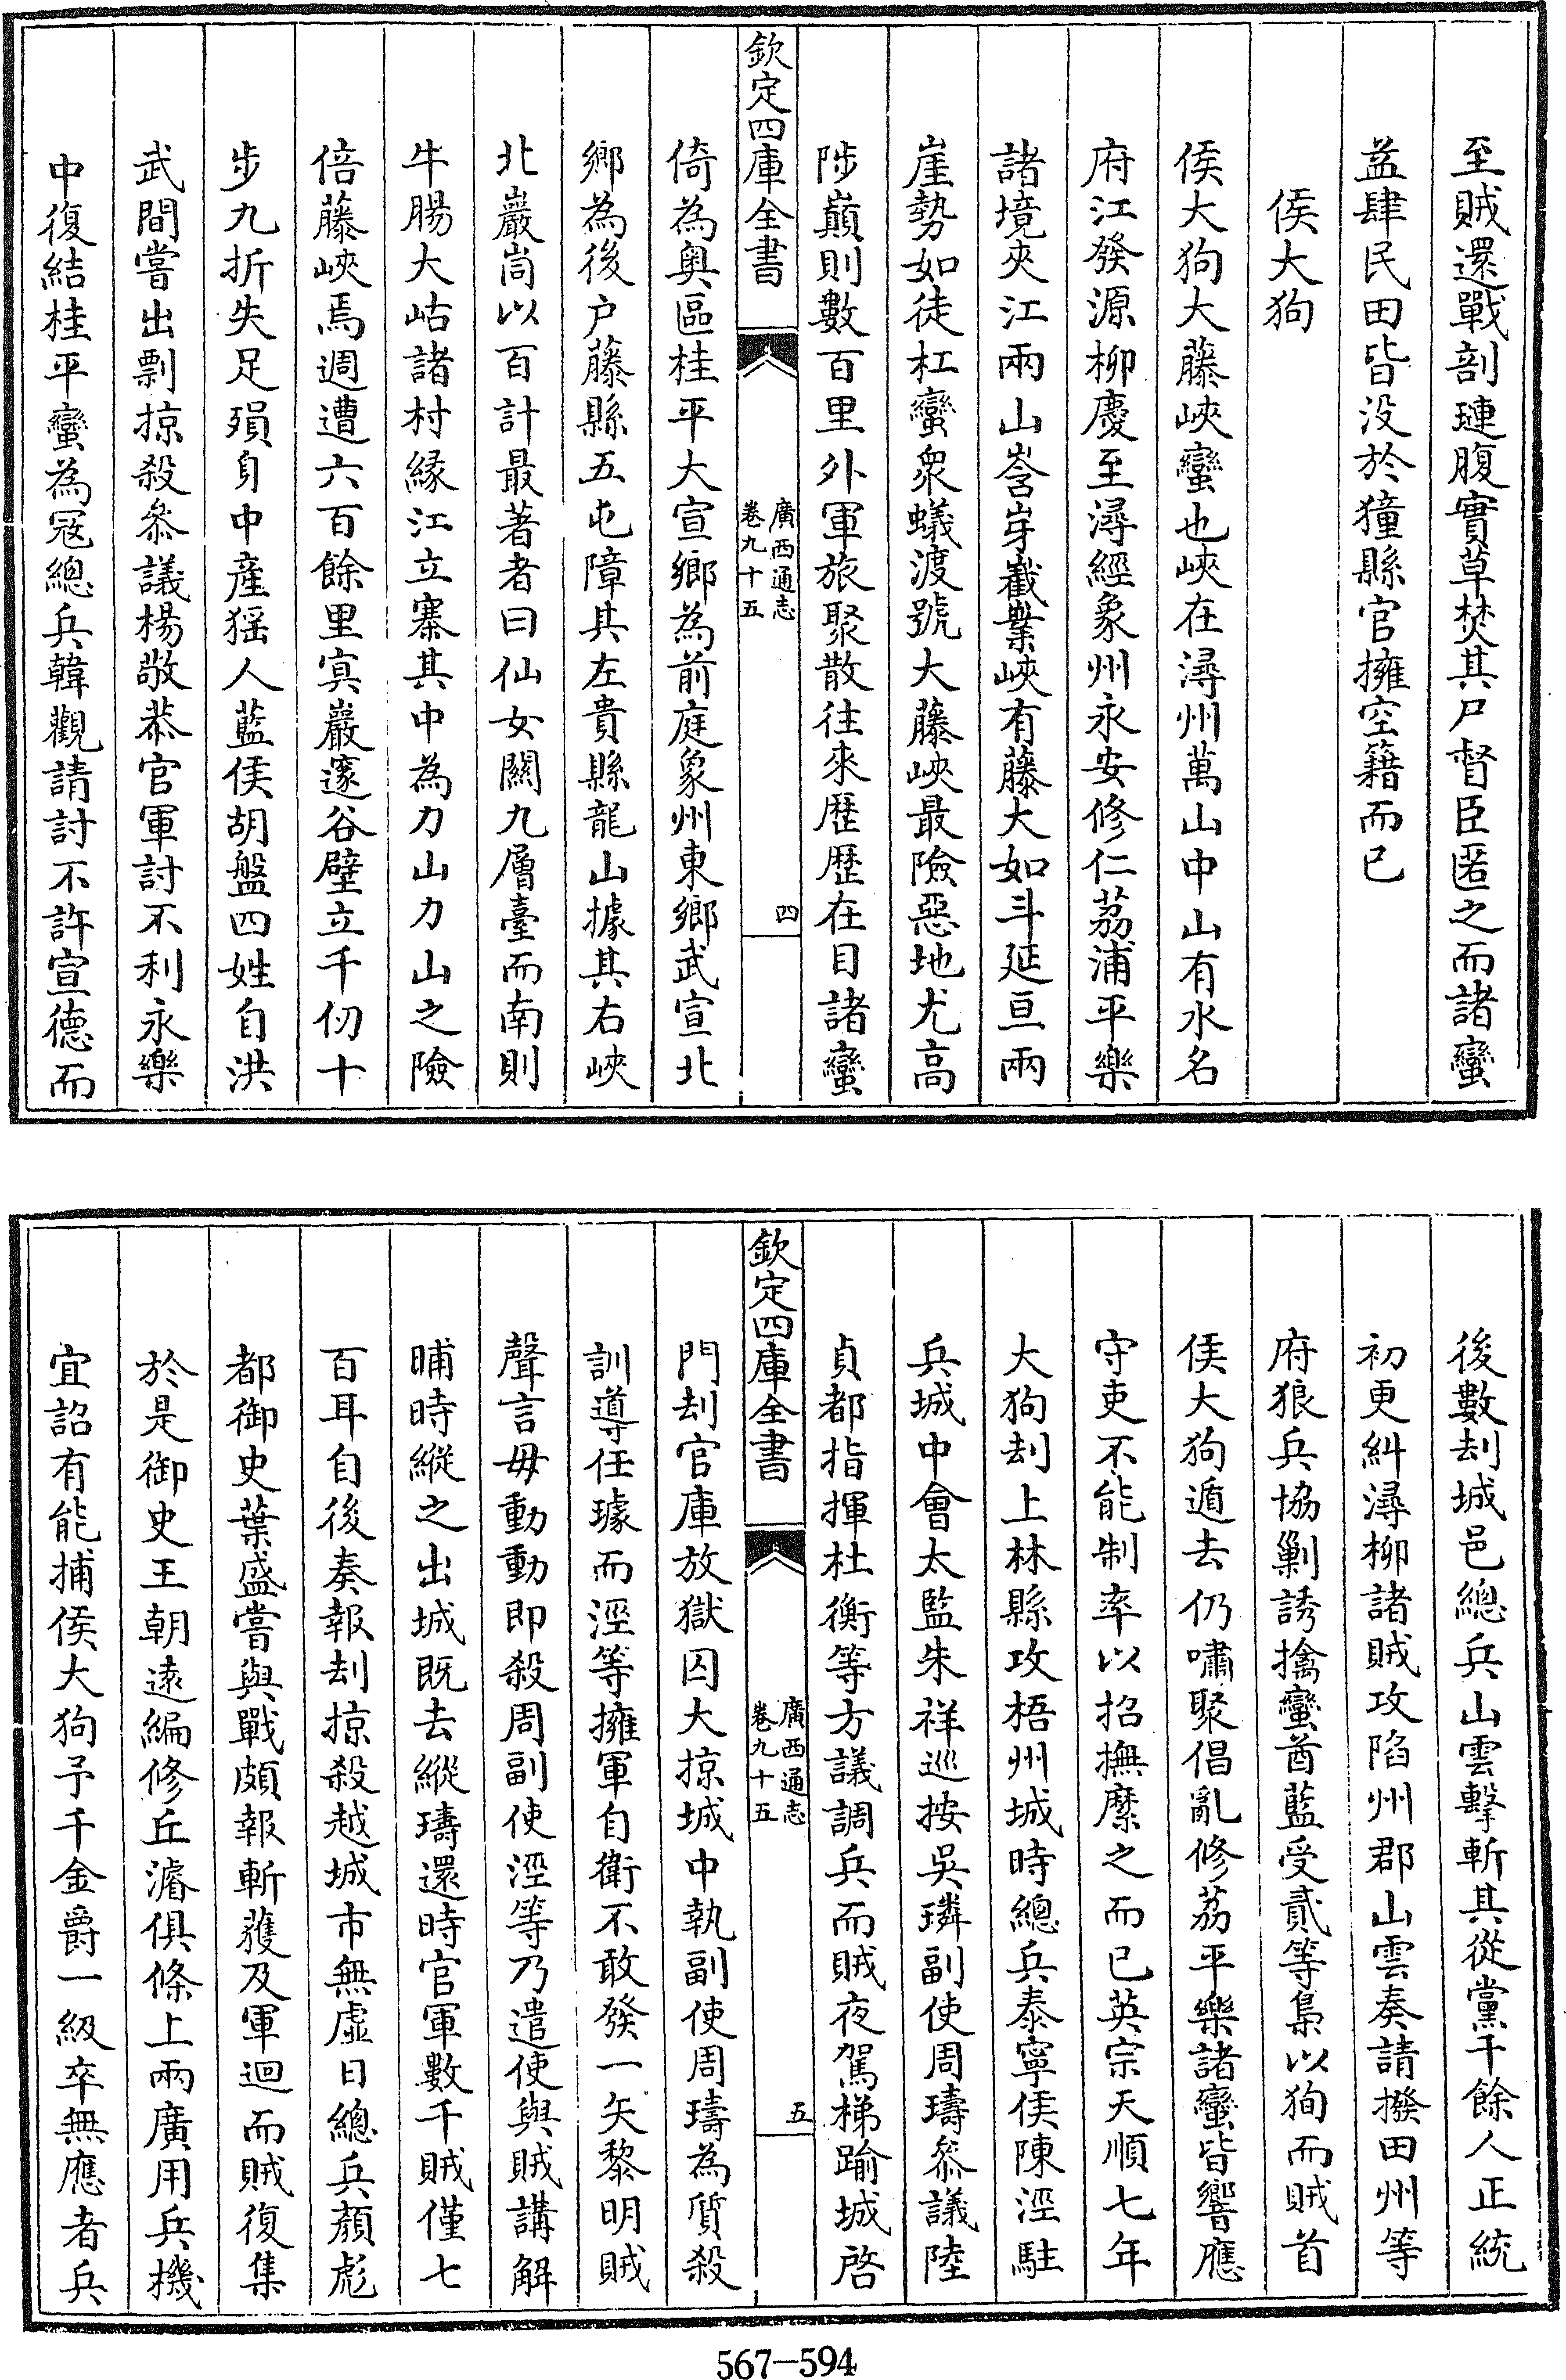 至賊還戰剖璉腹實草焚其尸督臣匿之而諸蠻
益肆民田皆没於獞縣官擁空籍而已
侯大狗
侯大狗大藤峽蠻也峽在潯州萬山中山有水名
府江發源柳慶至潯經象州永安修仁荔浦平樂
諸境夾江兩山岑岈巀嶪峽有藤大如斗延亘兩
崖勢如徒杠蠻衆蟻渡號大藤峽最險惡地尤高
陟巔則數百里外軍旅聚散往來歷歷在目諸蠻
欽定四庫全書
廣西通志
卷九十五
四
倚為奥區桂平大宣鄉為前庭象州東鄉武宣北
鄉為後户藤縣五屯障其左貴縣龍山據其右峽
北巖峝以百計最著者曰仙女關九層臺而南則
牛腸大岵諸村緣江立寨其中為力山力山之險
倍藤峽焉週遭六百餘里冥巖邃谷壁立千仞十
步九折失足殞身中産猺人藍侯胡盤四姓自洪
武間嘗出剽掠殺叅議楊敬恭官軍討不利永樂
中復結桂平蠻為冦總兵韓觀請討不許宣德而
後數刦城邑總兵山雲擊斬其從黨千餘人正統
初更糾潯柳諸賊攻陷州郡山雲奏請撥田州等
府狼兵協剿誘擒蠻酋藍受貳等梟以狥而賊首
侯大狗遁去仍嘯聚倡亂修荔平樂諸蠻皆響應
守吏不能制率以招撫縻之而已英宗天順七年
大狗刦上林縣攻梧州城時總兵泰寧侯陳涇駐
兵城中會太監朱祥巡按吳璘副使周璹叅議陸
貞都指揮杜衡等方議調兵而賊夜駕梯踰城啓
欽定四庫全書
廣西通志
卷九十五
五
門刦官庫放獄囚大掠城中執副使周璹為質殺
訓導任璩而涇等擁軍自衛不敢發一矢黎明賊
聲言毋動動即殺周副使涇等乃遣使與賊講解
晡時縱之出城既去縱璹還時官軍數千賊僅七
百耳自後奏報刦掠殺越城市無虛日總兵顔彪
都御史葉盛嘗與戰頗報斬獲及軍迴而賊復集
於是御史王朝遠編修丘濬俱條上兩廣用兵機
宜詔有能捕侯大狗予千金爵一級卒無應者兵
567—594